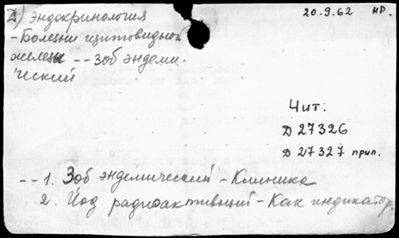 2) Эндокринология 20.9.62 НР.
- Болезни щитовидной
железы -- Зоб эндеми-
ческий
Чит.
Д 27326
Д 27327 прил.
-- 1. Зоб эндемический - Клиника
2. Йод радиоактивный - Как индикатор